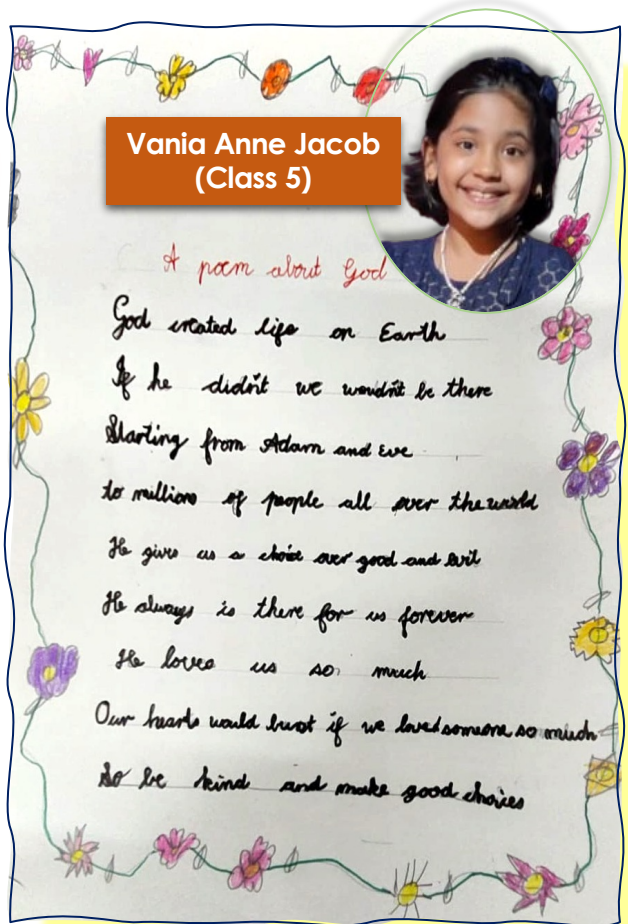 Vania Anne Jacob
(Class 5)
A poem about God
God created life on Earth
If he didn't we woudn't be there
Starting from Adam and Eve
to millions of people all over the world
He gives us a choice over good and evil
He always is there for us forever
He loves us so much
Our hearts would burst if we loved someone so much
So be kind and make good choices